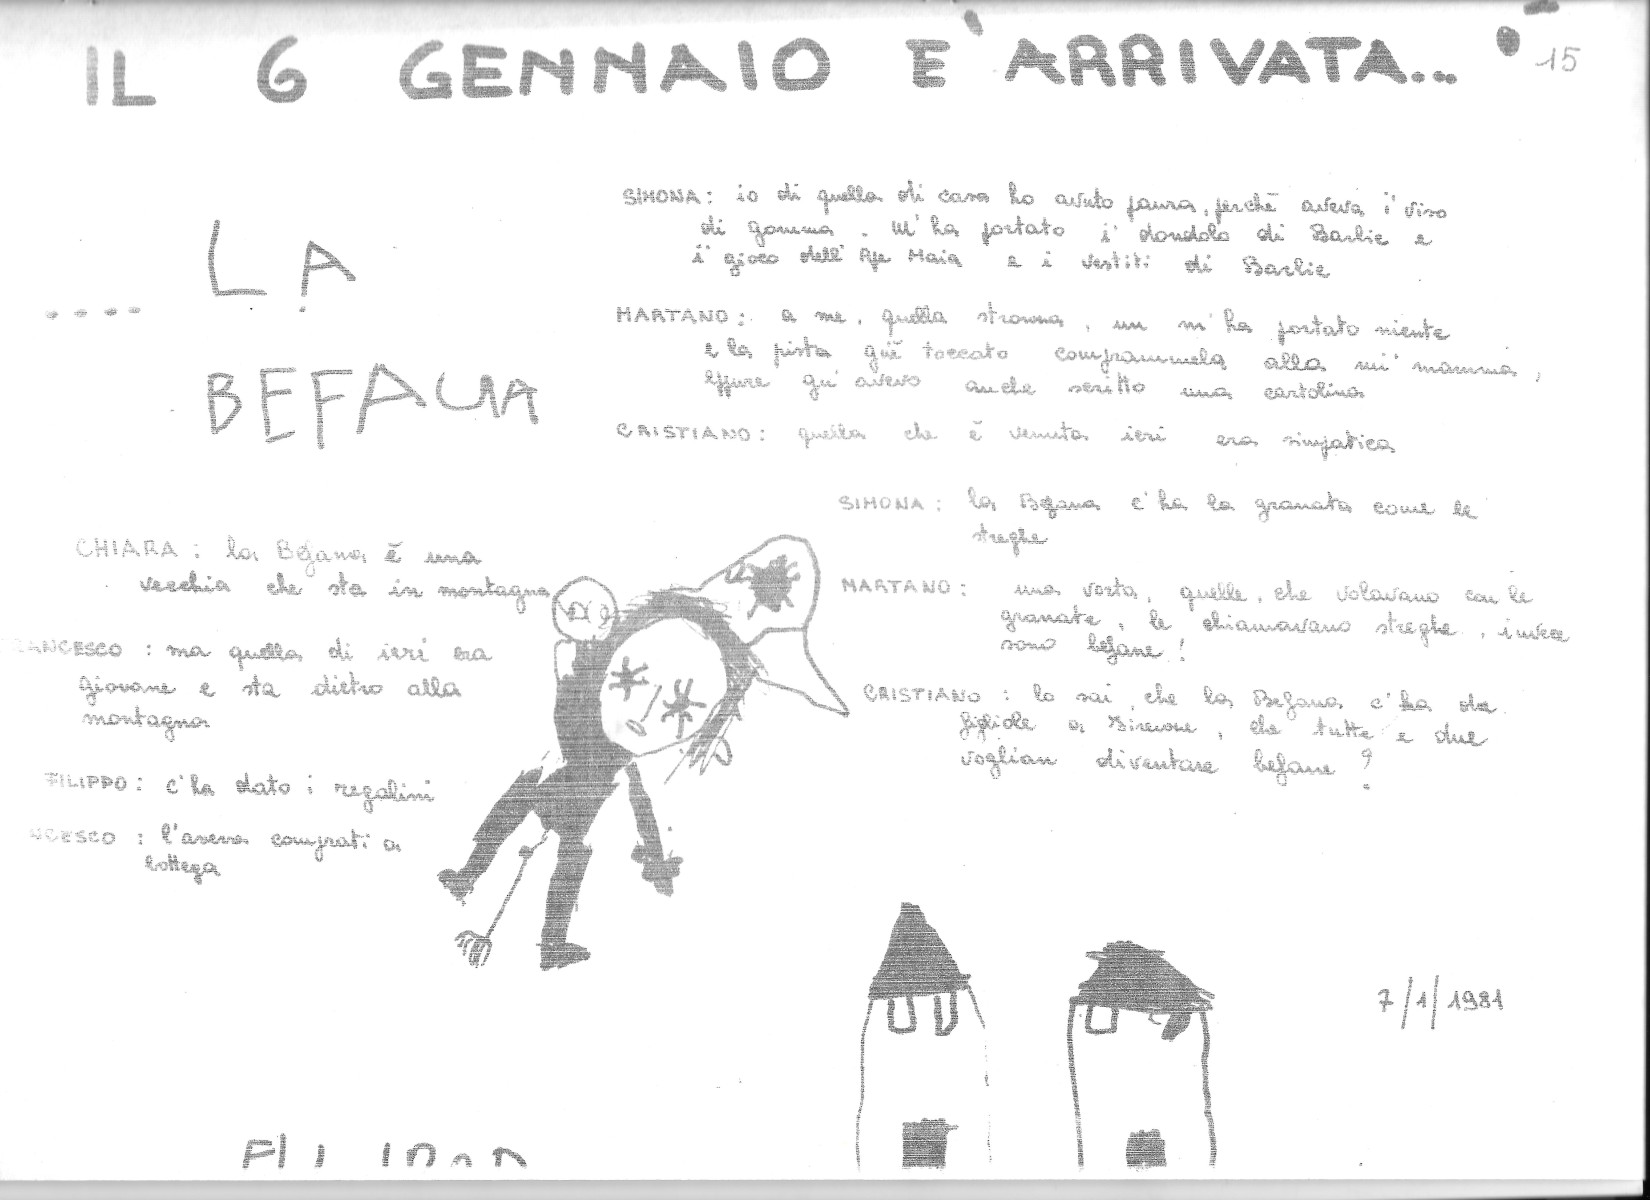 IL 6 GENNAIO E' ARRIVATA...
15
.... LA
BEFANA
SIMONA: io di quella di casa ho avuto paura, perchè aveva i' viso
di gomma. M'ha portato i' dondolo di Barbie e
i' gioco dell'Ape Maia e i vestiti di Barbie
MARTANO: a me, quella stronza, un m'ha portato niente
e la pista gl'è toccato comprammela alla mi' mamma,
eppure gn'avevo anche scritto una cartolina
CRISTIANO: quella che è venuta ieri era simpatica
CHIARA: la Befana è una
vecchia che sta in montagna
ANCESCO: ma quella di ieri era
giovane e sta dietro alla
montagna
FILIPPO: c'ha dato i regalini
NCESCO: l'aveva comprati a
bottega
SIMONA: la Befana c'ha la granata come le
streghe
MARTANO: una vorta, quelle, che volavano con le
granate, le chiamavano streghe, invece
sono befane!
CRISTIANO: lo sai, che la Befana c'ha du
figliole a Sireone, che tutte e due
voglian diventare befane?
7/1/1981
FILIPPO